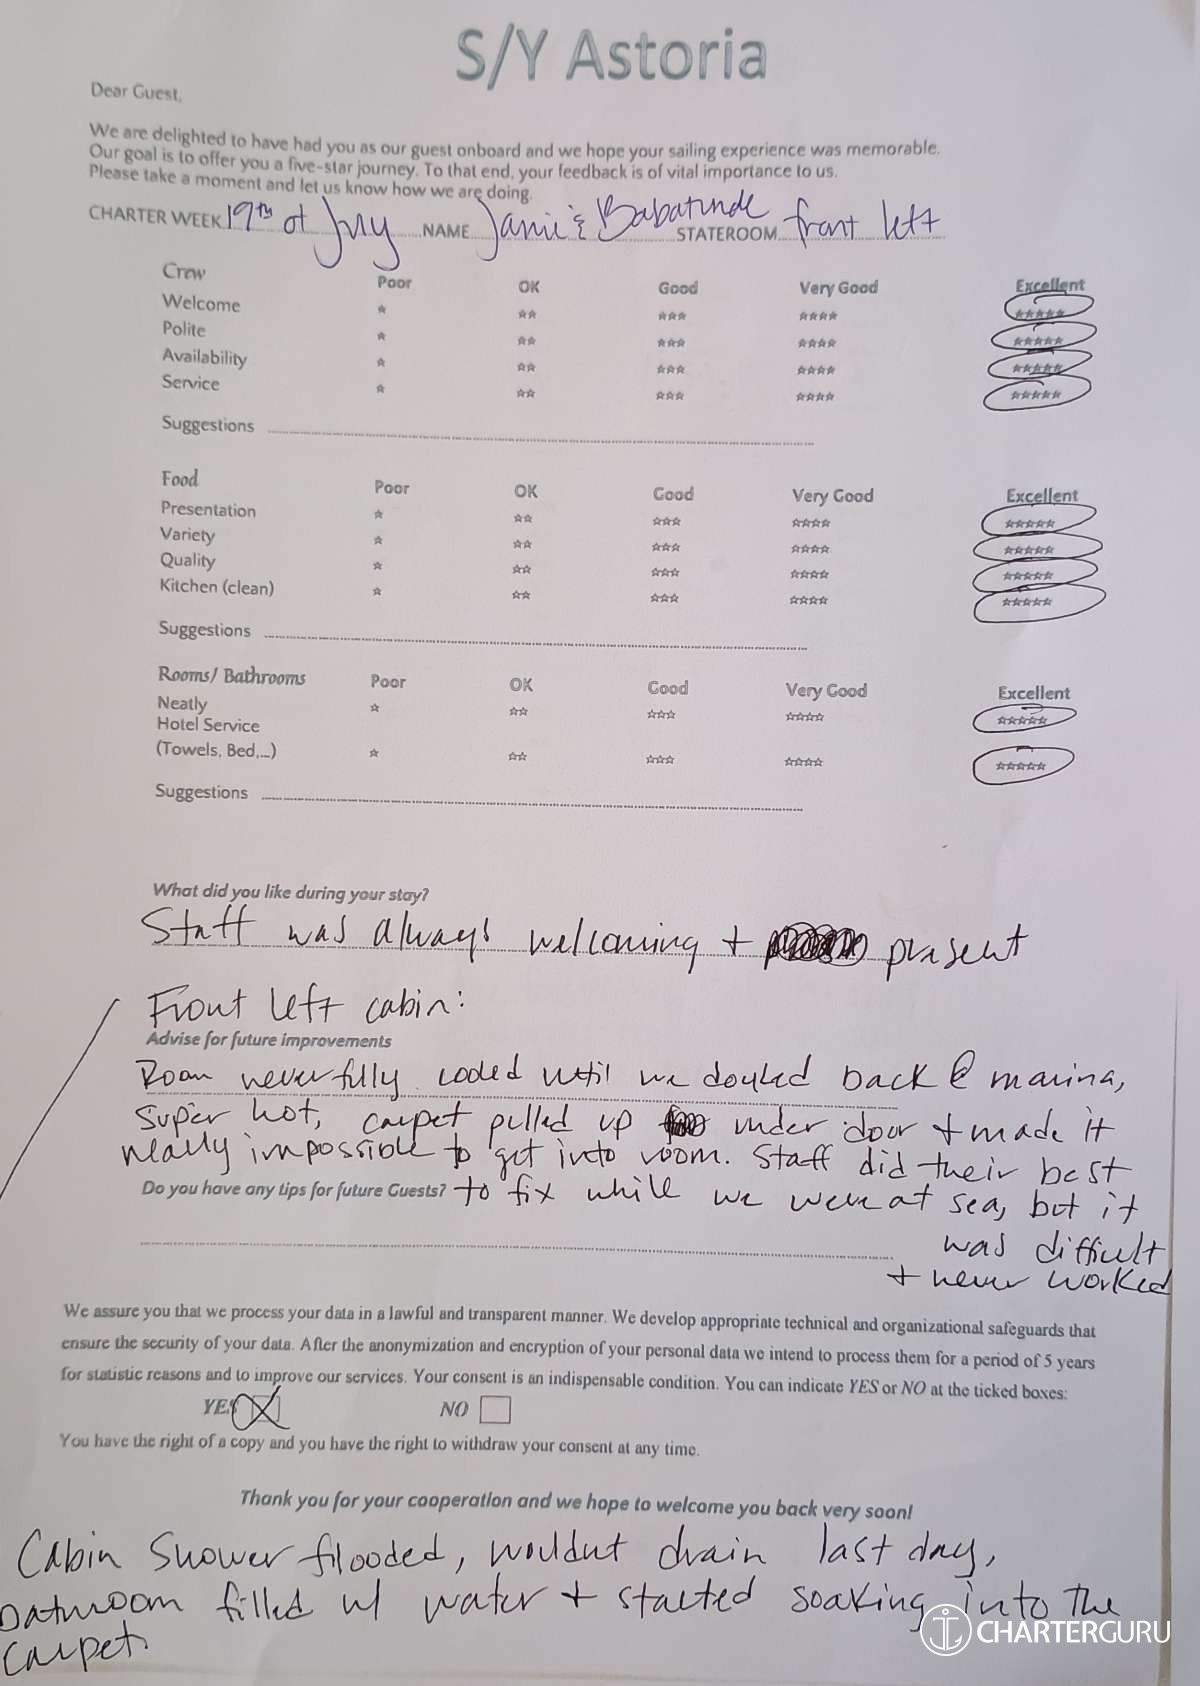 S/Y Astoria
Dear Guest,
We are delighted to have had you as our guest onboard and we hope your sailing experience was memorable.
Our goal is to offer you a five-star journey. To that end, your feedback is of vital importance to us.
Please take a moment and let us know how we are doing.
CHARTER WEEK 19th of July NAME Jamie & Babatunde STATEROOM front left
Crew Poor OK Good Very Good Excellent
Welcome ☆ ☆☆ ☆☆☆ ☆☆☆☆ ☆☆☆☆☆
Polite ☆ ☆☆ ☆☆☆ ☆☆☆☆ ☆☆☆☆☆
Availability ☆ ☆☆ ☆☆☆ ☆☆☆☆ ☆☆☆☆☆
Service ☆ ☆☆ ☆☆☆ ☆☆☆☆ ☆☆☆☆☆
Suggestions
Food Poor OK Good Very Good Excellent
Presentation ☆ ☆☆ ☆☆☆ ☆☆☆☆ ☆☆☆☆☆
Variety ☆ ☆☆ ☆☆☆ ☆☆☆☆ ☆☆☆☆☆
Quality ☆ ☆☆ ☆☆☆ ☆☆☆☆ ☆☆☆☆☆
Kitchen (clean) ☆ ☆☆ ☆☆☆ ☆☆☆☆ ☆☆☆☆☆
Suggestions
Rooms/ Bathrooms Poor OK Good Very Good Excellent
Neatly ☆ ☆☆ ☆☆☆ ☆☆☆☆ ☆☆☆☆☆
Hotel Service
(Towels, Bed,...) ☆ ☆☆ ☆☆☆ ☆☆☆☆ ☆☆☆☆☆
Suggestions
What did you like during your stay?
Staff was always welcoming + present
Front left cabin:
Advise for future improvements
Room never fully cooled until we docked back @ marina,
super hot, carpet pulled up under door + made it
nearly impossible to get into room. Staff did their best
Do you have any tips for future Guests? to fix while we were at sea, but it
was difficult
+ never worked
We assure you that we process your data in a lawful and transparent manner. We develop appropriate technical and organizational safeguards that
ensure the security of your data. After the anonymization and encryption of your personal data we intend to process them for a period of 5 years
for statistic reasons and to improve our services. Your consent is an indispensable condition. You can indicate YES or NO at the ticked boxes:
YES NO
You have the right of a copy and you have the right to withdraw your consent at any time.
Thank you for your cooperation and we hope to welcome you back very soon!
Cabin shower flooded, wouldnt drain last day,
bathroom filled w/ water + started soaking into the
carpet.
CHARTERGURU